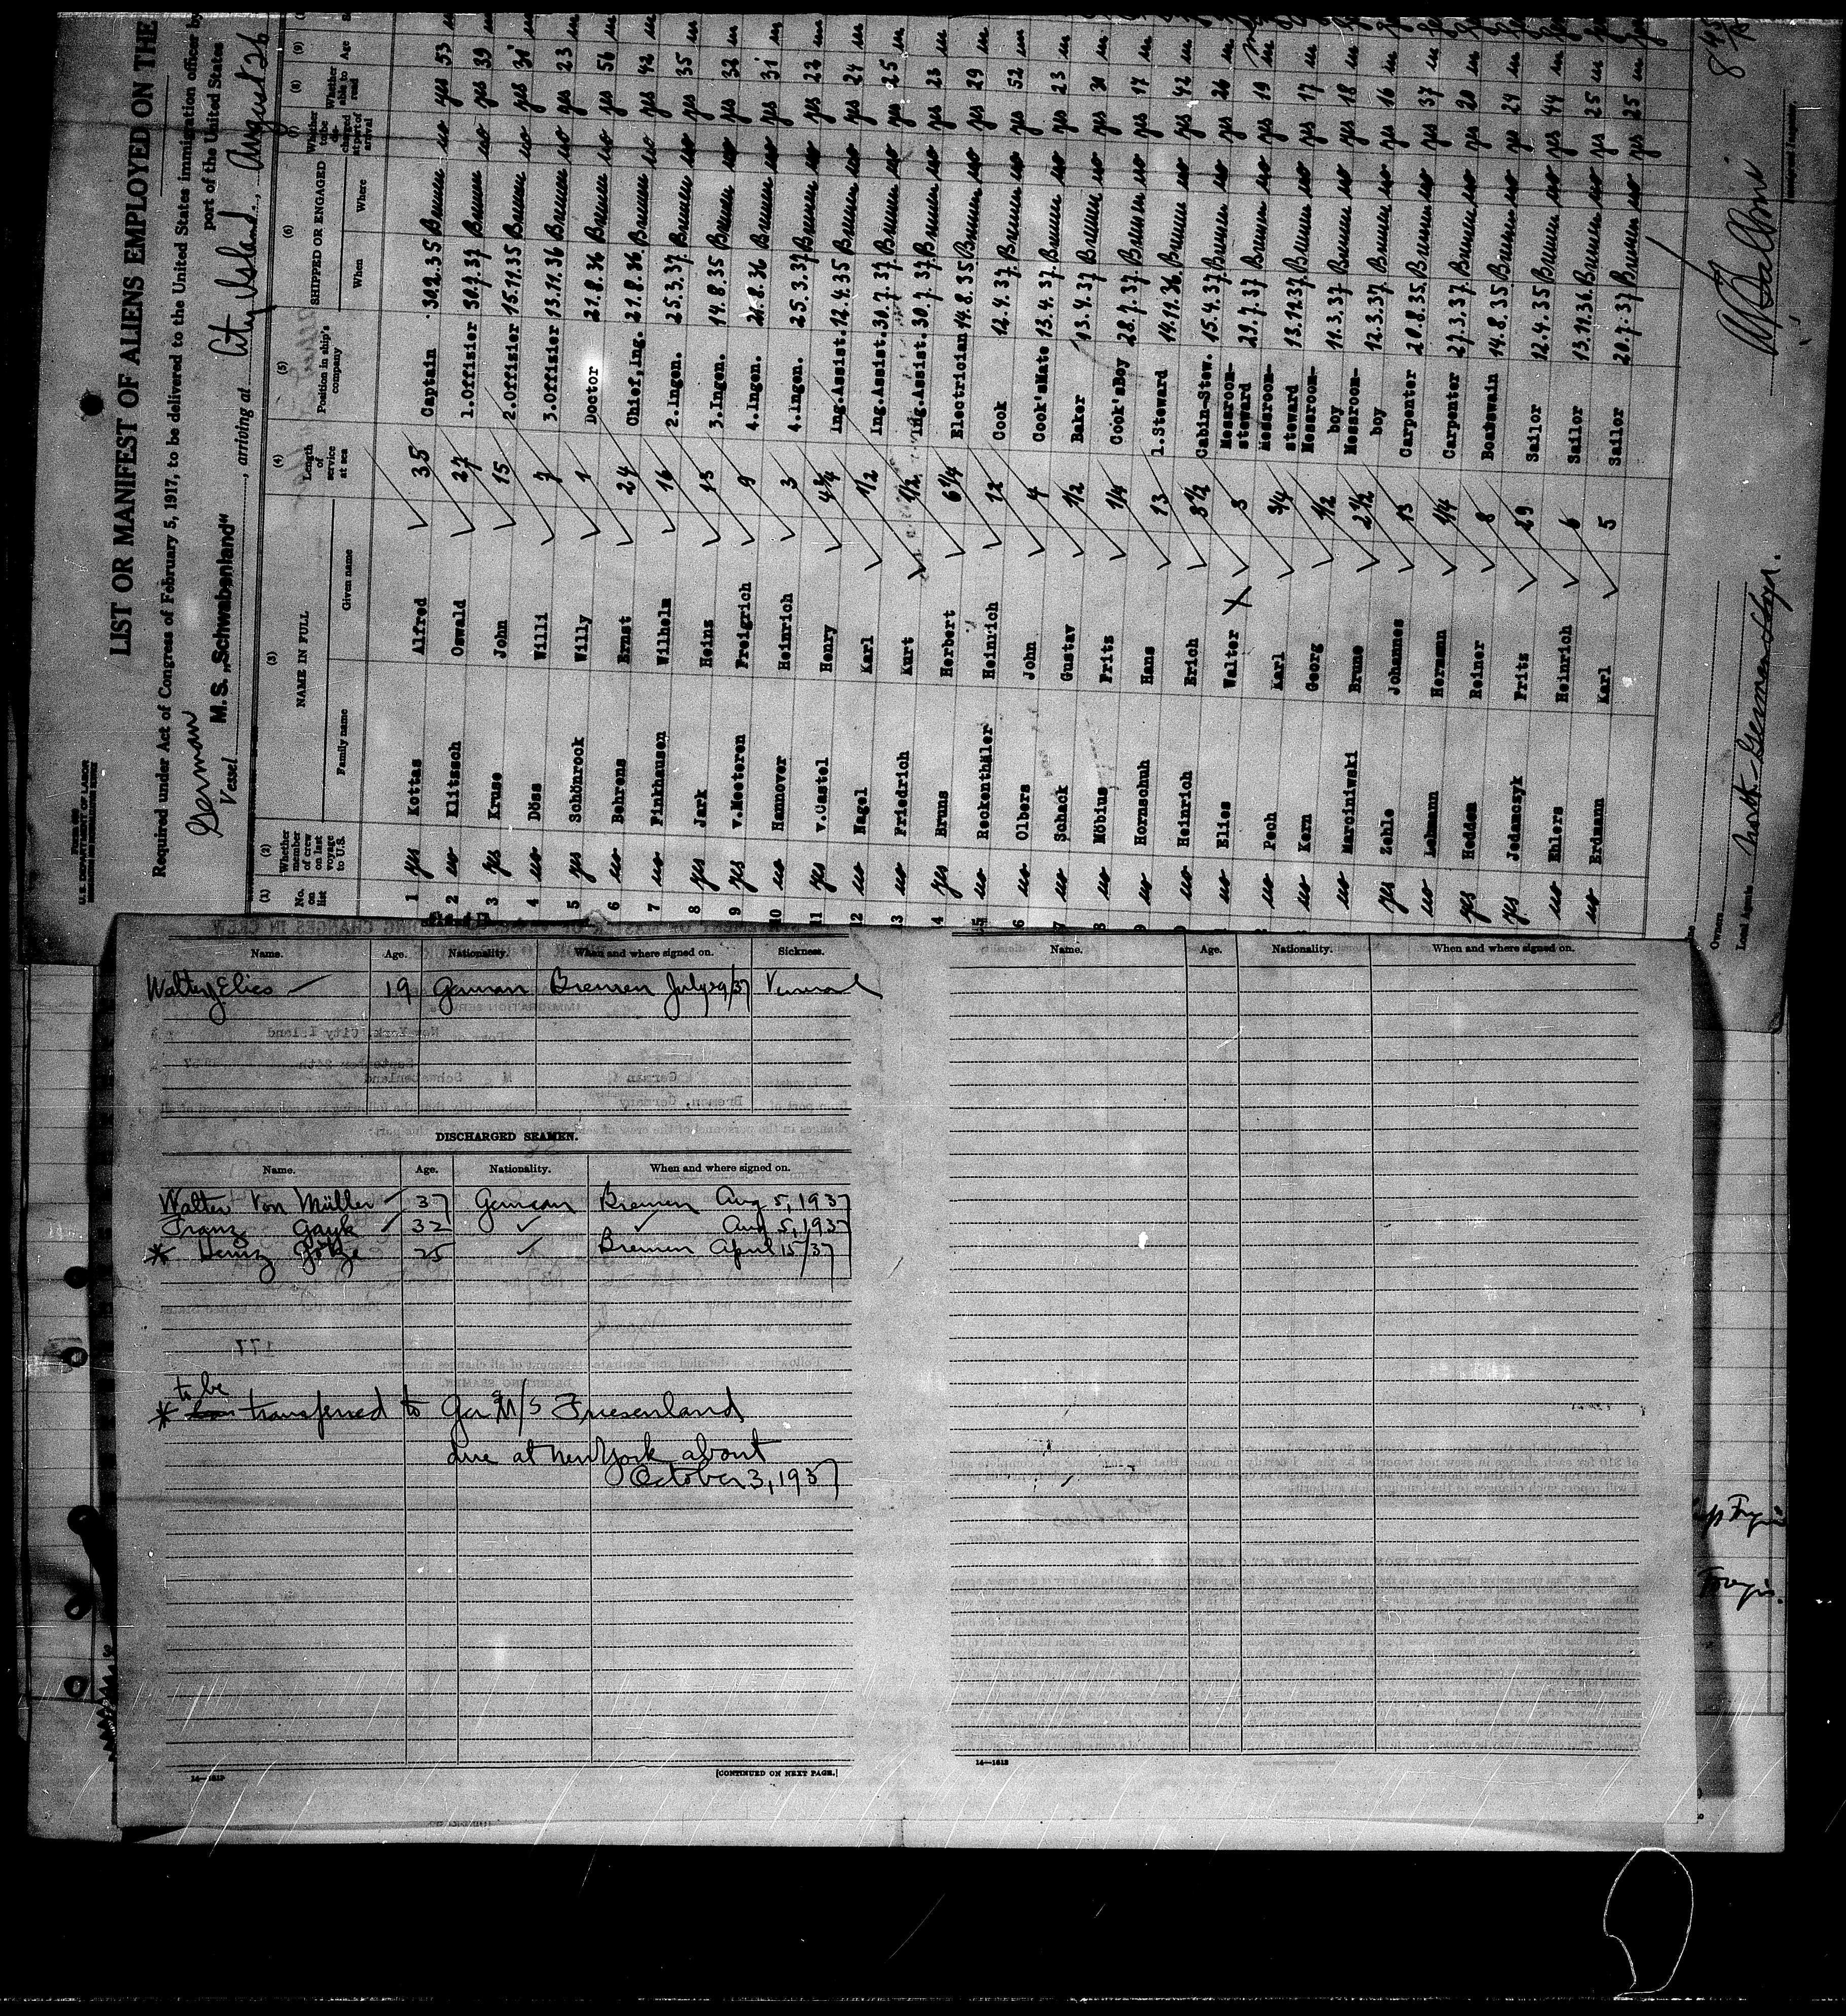 Form 689
U.S. DEPARTMENT OF LABOR
LIST OR MANIFEST OF ALIENS EMPLOYED ON THE
Required under Act of Congress of February 5, 1917, to be delivered to the United States immigration officer by
port of the United States
German
Vessel M. S. „Schwabenland“, arriving at City Island, August 26
(1) (2) (3) (4) (5) (6) (7) (8) (9)
No. on list Whether member of crew on last voyage to U.S. NAME IN FULL Family name Given name Length of service at sea Position in ship's company SHIPPED OR ENGAGED When Where Whether to be discharged at port of arrival Whether able to read Age
1 yes Kottas Alfred 35 Captain 30.2.35 Bremen no yes 53 m
2 no Klitzsch Oswald 27 1.Offizier 30.7.37 Bremen no yes 39 m
3 yes Kruse John 15 2.Offizier 15.11.35 Bremen no yes 31 m
4 no Döss Willi 7 3.Offizier 13.11.36 Bremen no yes 23 m
5 yes Schönrock Willy 1 Doctor 21.8.36 Bremen no yes 56 m
6 no Behrens Ernst 24 Chief,Ing. 21.8.36 Bremen no yes 42 m
7 no Finkhausen Wilhelm 16 2.Ingen. 25.3.37 Bremen no yes 35 m
8 yes Jark Heinz 13 3.Ingen. 14.8.35 Bremen no yes 32 m
9 yes v.Meeteren Freigrich 9 4.Ingen. 21.8.36 Bremen no yes 31 m
10 no Hannover Heinrich 3 4.Ingen. 25.3.37 Bremen no yes 22 m
11 yes v.Castel Henry 4¾ Ing.Assist. 12.4.35 Bremen no yes 24 m
12 no Nagel Karl 1/2 Ing.Assist. 30.7.37 Bremen no yes 25 m
13 no Friedrich Kurt 1/2 Ing.Assist. 30.7.37 Bremen no yes 23 m
14 yes Bruns Herbert 6 1/4 Electrician 14.8.35 Bremen no yes 29 m
15 no Reckenthäler Heinrich 12 Cook 12.4.37 Bremen no yes 52 m
6 no Olbers John 4 Cook'sMate 13.4.37 Bremen no yes 23 m
7 no Schack Gustav 1/2 Baker 13.4.37 Bremen no yes 30 m
8 no Möbius Fritz 1/4 Cook'sBoy 28.7.37 Bremen no yes 17 m
9 no Hornschuh Hans 13 1.Steward 14.11.36 Bremen no yes 42 m
0 no Heinrich Erich 8½ Cabin-Stew. 15.4.37 Bremen no yes 26 m
no Elies Walter X 3 Messroom-steward 29.7.37 Bremen no yes 19 m
no Pech Karl 3/4 Messroom-steward Bremen no yes 17 m
no Kern Georg 1/2 Messroom-boy 11.3.37 Bremen no yes 18 m
no Marciniwski Bruno 2½ Messroom-boy 12.3.37 Bremen no yes 16 m
yes Zehle Johannes 13 Carpenter 20.8.35 Bremen no yes 37 m
no Lehmann Hermann 1/4 Carpenter 27.3.37 Bremen no yes 20 m
yes Hedden Reiner 8 Boatswain 14.8.35 Bremen no yes 24 m
yes Jedamczyk Fritz 29 Sailor 12.4.35 Bremen no yes 44 m
no Ehlers Heinrich 6 Sailor 13.11.36 Bremen no yes 25 m
no Erdmann Karl 5 Sailor 20.7.37 Bremen no yes 25 m
Owners
Local Agents North-German Lloyd.
Immigrant Inspector.
Name. Age. Nationality. When and where signed on. Sickness.
Walter Elies 19 German Bremen July 29/37
DISCHARGED SEAMEN.
Name. Age. Nationality. When and where signed on.
Walter Von Müller 37 German Bremen Aug 5, 1937
Franz Gayk 32 ✓ ✓ Aug 5, 1937
* Heinz Götze 25 ✓ Bremen April 15/37
to be
* transferred to Ger M/S Friesenland
due at New York about
October 3, 1937
14—1612
[CONTINUED ON NEXT PAGE.]
Name. Age. Nationality. When and where signed on.
14—1612